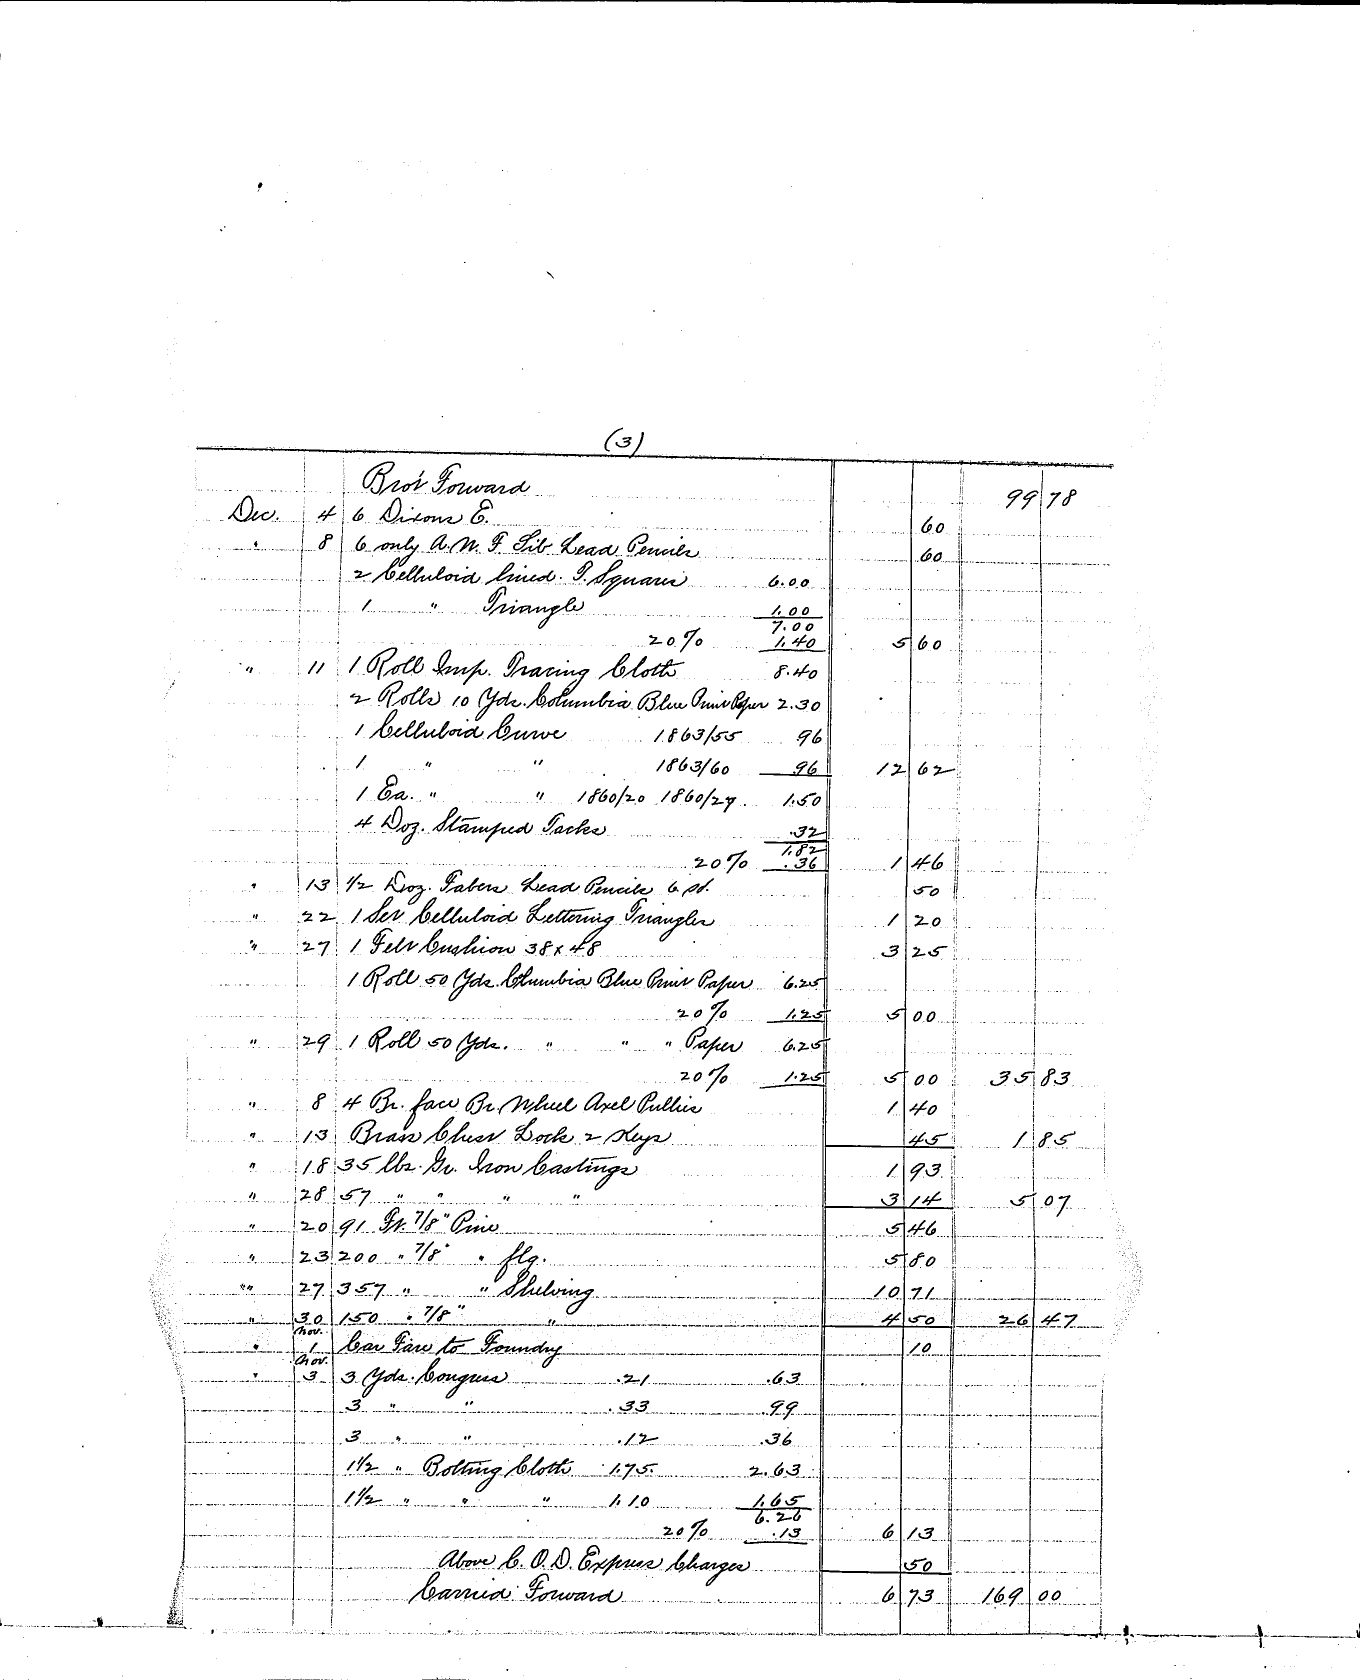 (3)
Bro't Forward 99 78
Dec. 4 6 Dixons E. 60
" 8 6 only A. W. F. Sib Lead Pencils 60
2 Celluloid lined T. Squares 6.00
1 " Triangle 1.00
7.00
20% 1.40 5 60
" 11 1 Roll Imp. Tracing Cloth 8.40
2 Rolls 10 Yds. Columbia Blue Print Paper 2.30
1 Celluloid Curve 1863/55 96
1 " " 1863/60 96 12 62
1 Ea. " " 1860/20 1860/27 1.50
4 Doz. Stamped Tacks .32
1.82
20% .36 1 46
" 13 1/2 Doz. Fabers Lead Pencils 50
" 22 1 Set Celluloid Lettering Triangles 1 20
" 27 1 Felt Cushion 38 x 48 3 25
1 Roll 50 Yds. Columbia Blue Print Paper 6.25
20% 1.25 5 00
" 29 1 Roll 50 Yds. " " " Paper 6.25
20% 1.25 5 00 35 83
" 8 4 Br. face Br. Wheel Axel Pullies 1 40
" 13 Brass Chest Lock 2 Keys 45 1 85
" 18 35 lbs. Gr. Iron Castings 1 93
" 28 57 " " " " 3 14 5 07
" 20 91 Ft. 7/8" Pine 5 46
" 23 200 " 7/8" " flg. 5 80
"" 27 357 " " Shelving 10 71
" 30 150 " 7/8" " 4 50 26 47
" Nov. 1 Car Fare to Foundry 10
" Nov. 3 3 Yds. Congress .21 .63
3 " " .33 .99
3 " " .12 .36
1 1/2 " Bolting Cloth 1.75 2.63
1 1/2 " " " 1.10 1.65
6.26
20% .13 6 13
Above C. O. D. Express Charges 50
Carried Forward 6 73 169 00